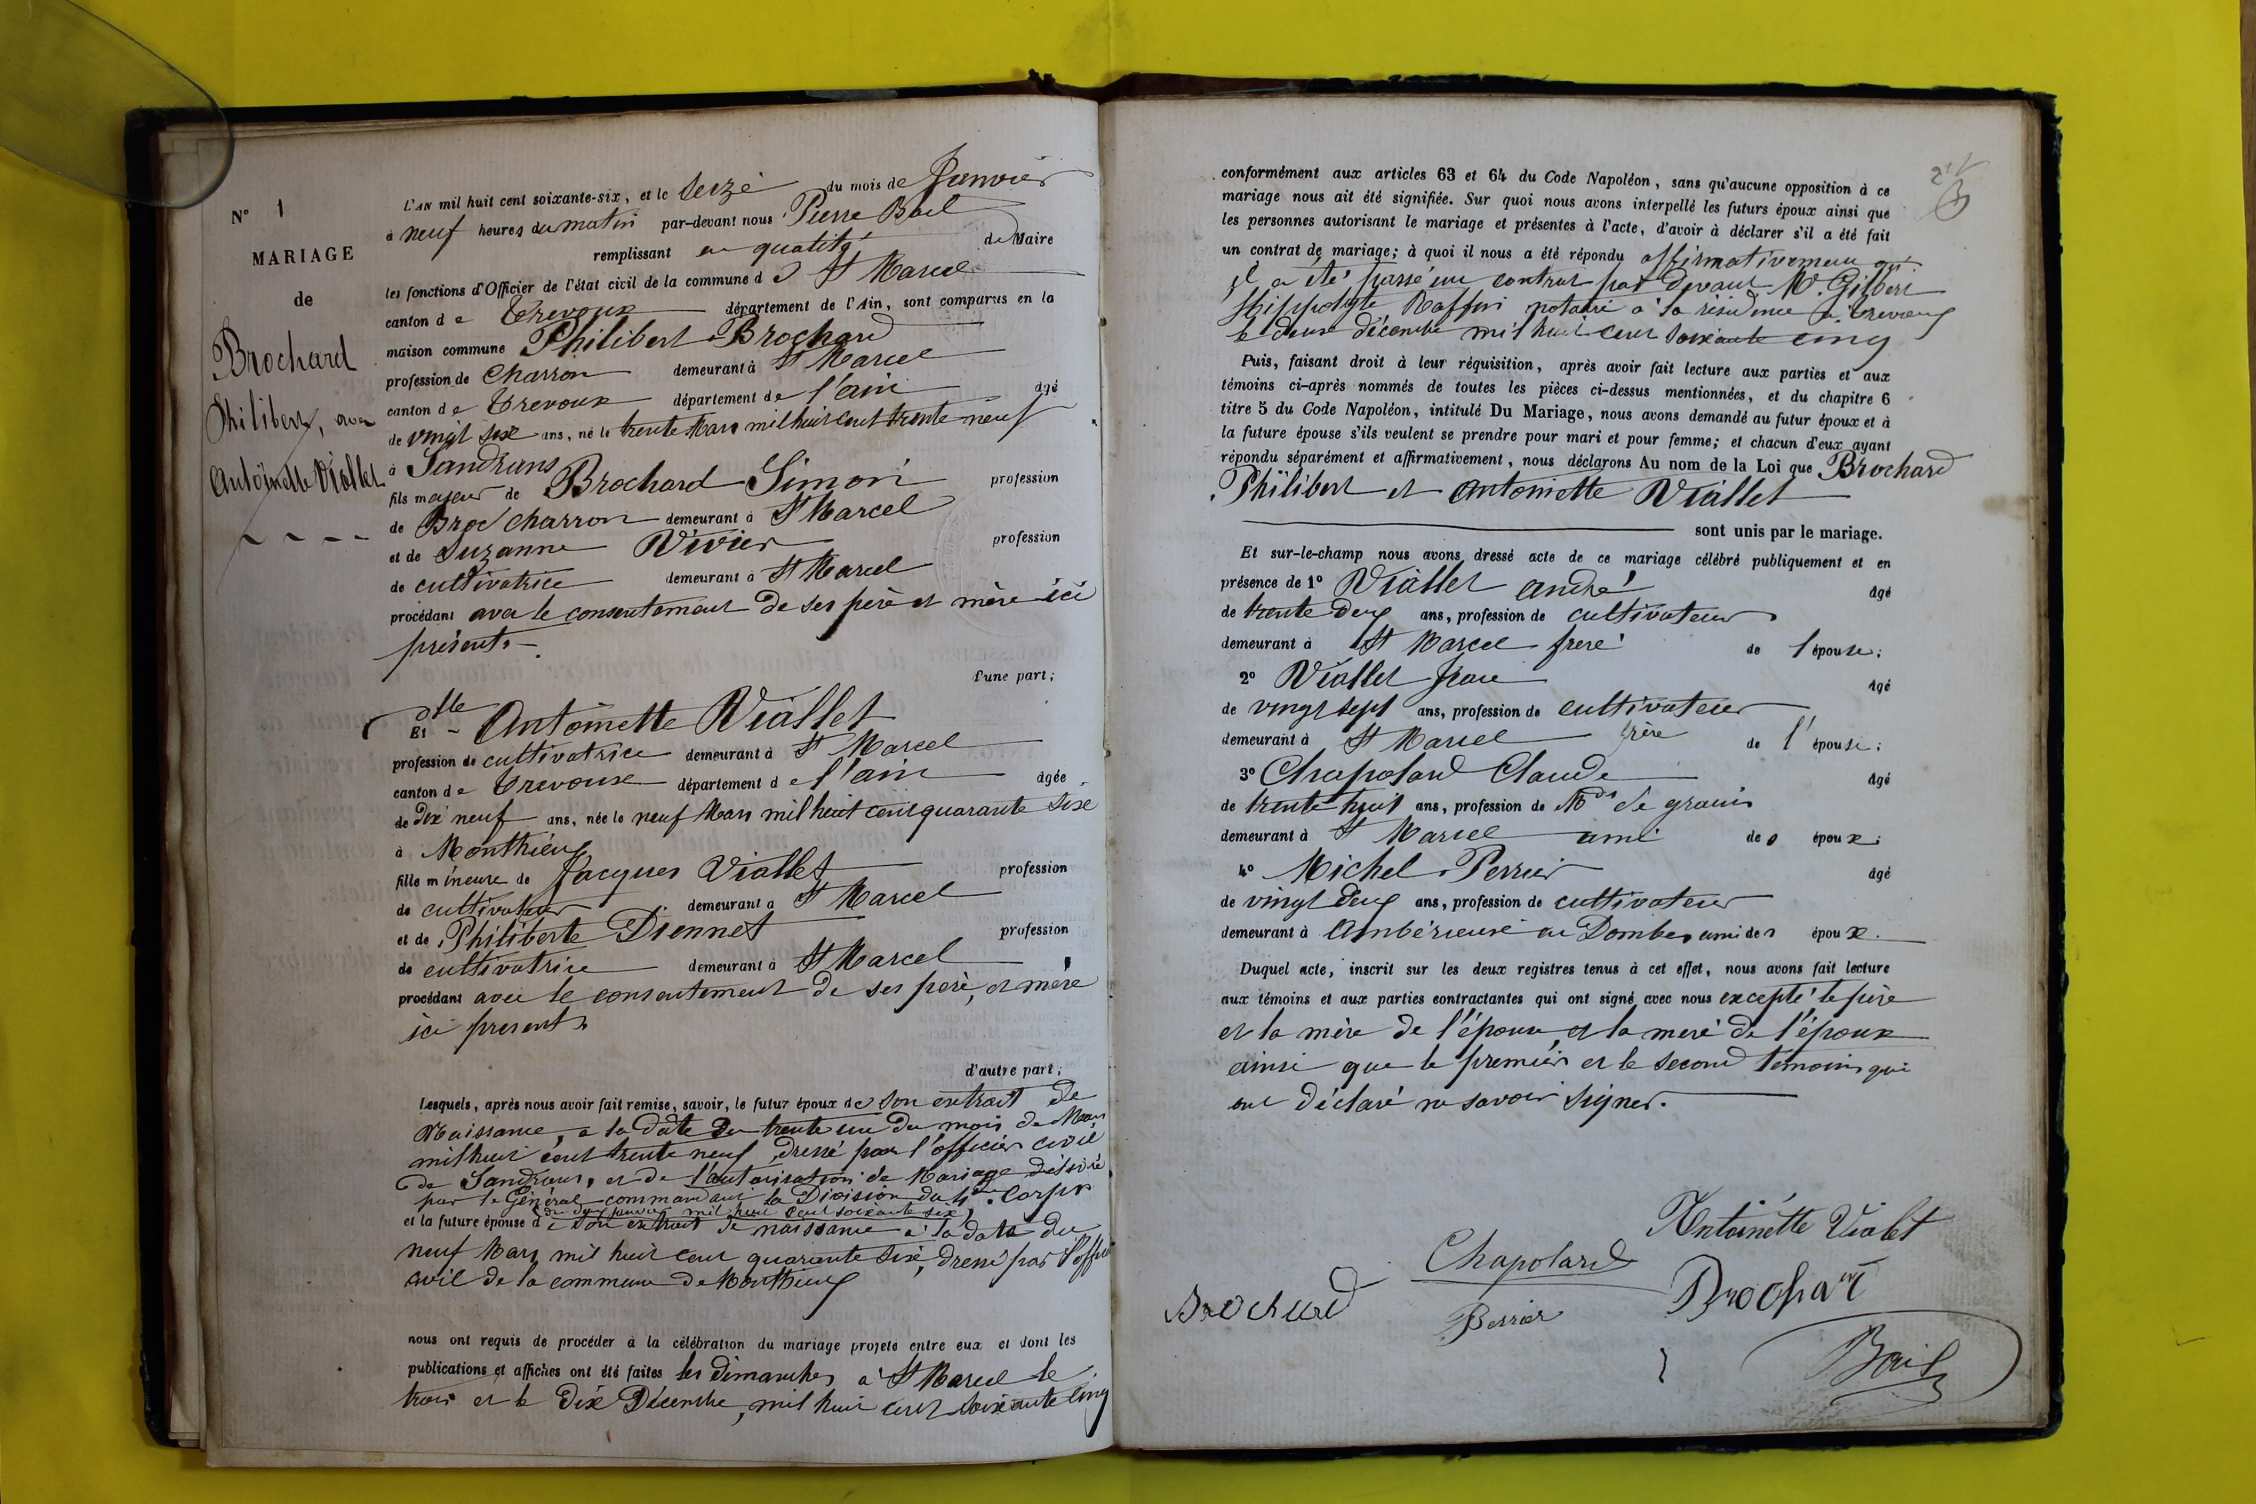 N° 1
MARIAGE
de
Brochard
Philibert, avec
Antoinette Viallet
L'AN mil huit cent soixante-six, et le seize du mois de Janvier
à neuf heures du matin par-devant nous Pierre Bail
remplissant en qualité de Maire
les fonctions d'Officier de l'état civil de la commune de St Marcel
canton de Trevoux département de l'Ain, sont comparus en la
maison commune Philibert Brochard
profession de Charron demeurant à St Marcel
canton de Trevoux département de l'ain âgé
de vingt six ans, né le trente Mars mil huit cent trente neuf
à Sandrans
fils majeur de Brochard Simon profession
de charron demeurant à St Marcel
et de Suzanne Vivier profession
de cultivatrice demeurant à St Marcel
procédant avec le consentement de ses père et mère ici
présents
d'une part;
Et dlle Antoinette Viallet
profession de cultivatrice demeurant à St Marcel
canton de Trevoux département de l'ain âgée
de dix neuf ans, née le neuf Mars mil huit cent quarante six
à Monthieux
fille mineure de Jacques Viallet profession
de cultivateur demeurant à St Marcel
et de Philiberte Diennet profession
de cultivatrice demeurant à St Marcel
procédant avec le consentement de ses père, et mère
ici présents
d'autre part;
Lesquels, après nous avoir fait remise, savoir, le futur époux de son extrait de
Naissance, a la date du trente un du mois de Mars
mil huit cent trente neuf, dressé par l'officier civil
de Sandrans, et de l'autorisation de Mariage délivré
par le Général commandant la Division du 4me Corps
(du deux janvier mil huit cent soixante six)
et la future épouse de son extrait de naissance à la date du
neuf Mars mil huit cent quarante six, dressé par l'officier
civil de la commune de Monthieux
nous ont requis de procéder à la célébration du mariage projeté entre eux et dont les
publications et affiches ont été faites les dimanches à St Marcel le
trois et le dix Décembre, mil huit cent soixante cinq
conformément aux articles 63 et 64 du Code Napoléon, sans qu'aucune opposition à ce
mariage nous ait été signifiée. Sur quoi nous avons interpellé les futurs époux ainsi que
les personnes autorisant le mariage et présentes à l'acte, d'avoir à déclarer s'il a été fait
un contrat de mariage; à quoi il nous a été répondu affirmativement qu'
il a été passé un contrat par devant M. Gilbert
Hippolyte Raffin notaire à la résidence de trevoux
le deux décembre mil huit cent soixante cinq
Puis, faisant droit à leur réquisition, après avoir fait lecture aux parties et aux
témoins ci-après nommés de toutes les pièces ci-dessus mentionnées, et du chapitre 6
titre 5 du Code Napoléon, intitulé Du Mariage, nous avons demandé au futur époux et à
la future épouse s'ils veulent se prendre pour mari et pour femme; et chacun d'eux ayant
répondu séparément et affirmativement, nous déclarons Au nom de la Loi que Brochard
Philibert et Antoinette Viallet
sont unis par le mariage.
Et sur-le-champ nous avons dressé acte de ce mariage célébré publiquement et en
présence de 1° Viallet andré âgé
de trente deux ans, profession de cultivateur
demeurant à St Marcel frère de l'épouse;
2° Viallet âgé
de vingt sept ans, profession de cultivateur
demeurant à St Marcel frère de l'épouse;
3° Chapolard Claude âgé
de trente huit ans, profession de Md de grains
demeurant à St Marcel ami des époux;
4° Michel Perrier âgé
de vingt deux ans, profession de cultivateur
demeurant à Ambérieux en Dombes ami des époux.
Duquel acte, inscrit sur les deux registres tenus à cet effet, nous avons fait lecture
aux témoins et aux parties contractantes qui ont signé avec nous excepté le père
et la mère de l'épouse, et la mère de l'époux
ainsi que le premier et le second témoins qui
ont déclaré ne savoir signer.
Antoinétte Vialet
Chapolard
Brochard
Brochard
Perrier
Bail